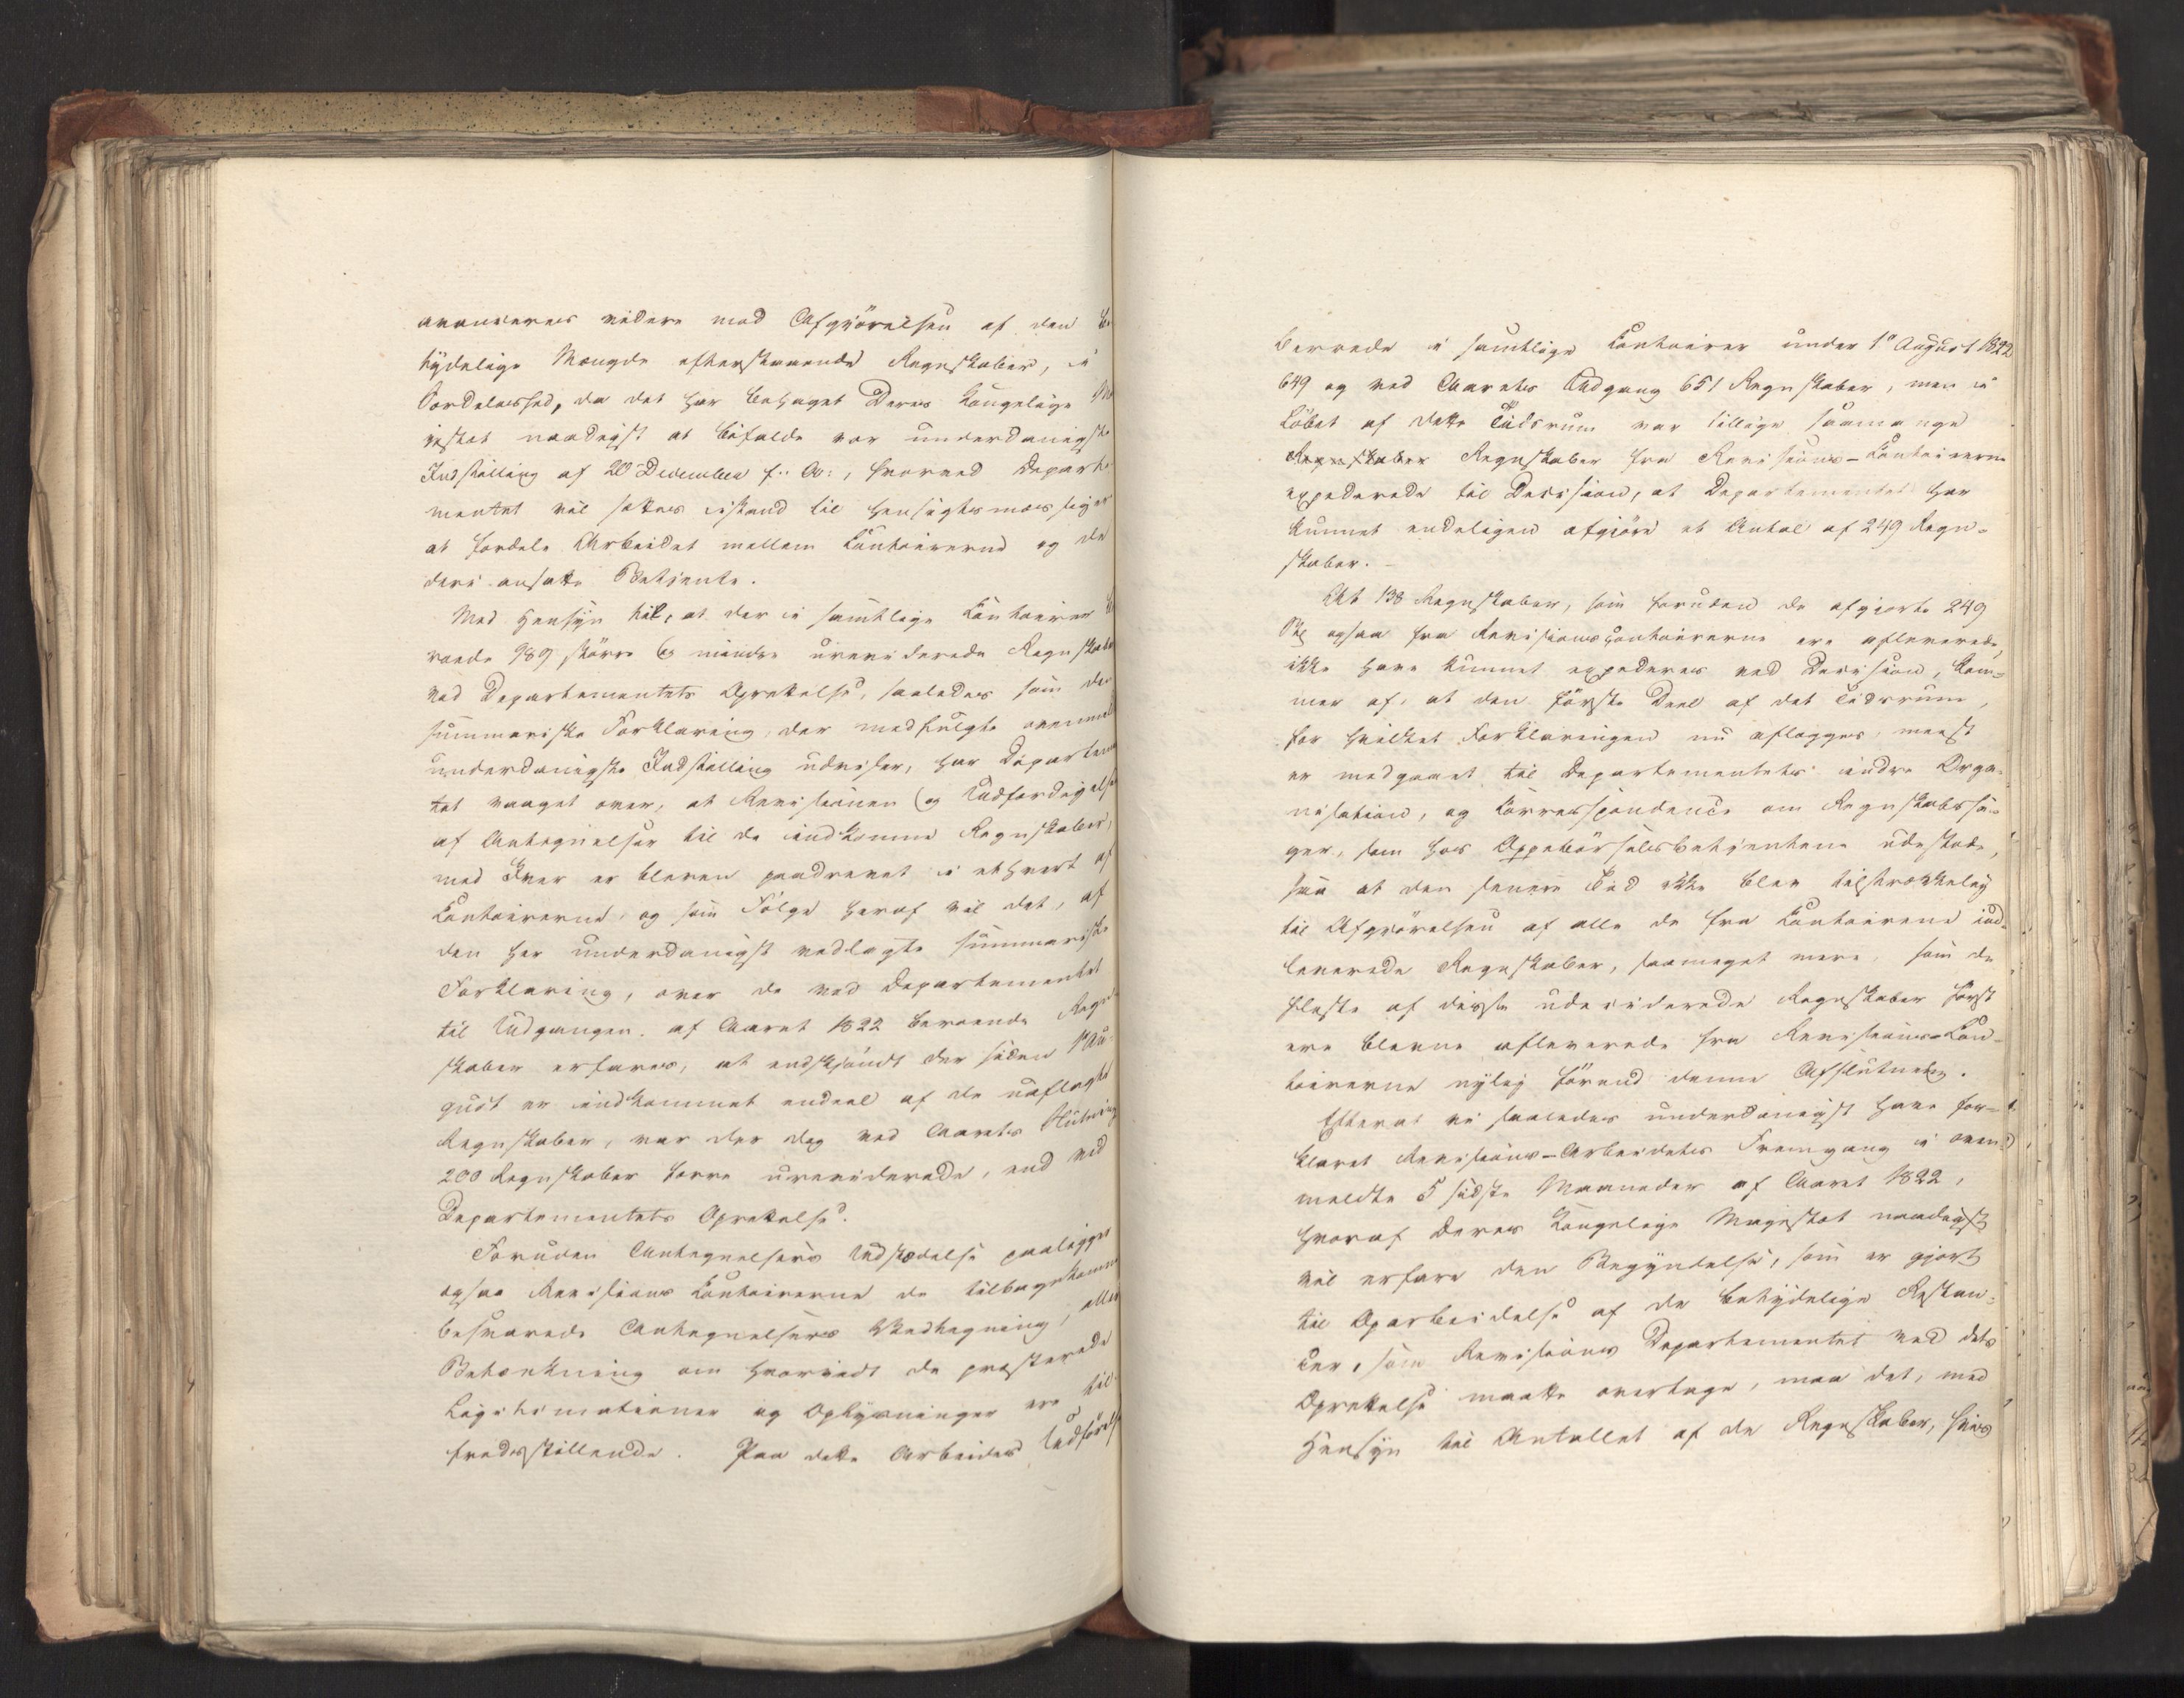 avanceres videre med Afgjörelsen af den be
tydelige Mængde efterstaaende Regnskaber, i
Særdeleshed, da det har behaget Deres Kongelige Ma
jestæt naadigst at bifalde vor underdanigste
Indstilling af 20 December f. A:, hvorved Departe
mentet vil sættes istand til hensigtsmæssigen
at fordele Arbeidet mellem Contoirerne og de
deri ansatte Betjente.
Med Hensyn til, at der i samtlige Contoirer be
roede 989 större og mindre ureviderede Regnskaber
ved Departementets Oprettelse, saaledes som den
summariske Forklaring, der medfulgte ovenmeldte
underdanigste Indstilling udviser, har Departemen
tet vaaget over, at Revisionen og Udfærdigelsen
af Antegnelser til de indkomne Regnskaber,
med Iver er bleven paadrevet i ethvert af
Contoirerne, og som Fölge heraf vil det, af
den her underdanigst vedlagte summariske
Forklaring, over de ved Departementet
til Udgangen af Aaret 1822 beroende Regn
skaber erfares, at endskjöndt der siden 1 Au-
gust er indkommet endeel af de uaflagte
Regnskaber, var der dog ved Aarets Slutning
200 Regnskaber færre ureviderede, end ved
Departementets Oprettelse.
Foruden Antegnelsers Udstædelse paaligger
ogsaa Revisions Contoirerne de tilbagekomne
besvarede Antegnelsers Vedtegning, eller
Betænkning om hvorvidt de præsterede
Legitimationer og Oplysninger ere til
fredsstillende. Paa dette Arbeides Udförelse
beroede i samtlige Contoirer under 1 August 1822
649 og ved Aarets Udgang 651 Regnskaber, men i
Löbet af dette Tidsrum var tillige saamange
Regnskaber Regnskaber fra Revisions-Contoirerne
expederede til Decision, at Departementet har
kunnet endeligen afgjöre et Antal af 249 Regn-
skaber. -
At 138 Regnskaber, som foruden de afgjorte 249
Stk ogsaa fra Revisions Contoirerne ere afleverede,
ikke have kunnet expederes ved Decision, kom-
mer af, at den förste Deel af det Tidsrum,
for hvilket Forklaringen nu aflægges, meest
er medgaaet til Departementets indre Orga-
nisation, og Correspondence om Regnskabssa-
ger, som hos Oppebörselsbetjentene udestode,
saa at den senere Tid ikke blev tilstrækkelig
til Afgjörelsen af alle de fra Contoirene ind-
leverede Regnskaber, saameget mere, som de
fleste af disse udeciderede Regnskaber först
ere blevne afleverede fra Revisions-Con-
toirerne nylig förend denne Afslutning.
Efterat vi saaledes underdanigst have for-
klaret Revisions-Arbeidets Fremgang i oven-
meldte 5 sidste Maaneder af Aaret 1822,
hvoraf Deres Kongelige Majestæt naadigst
vil erfare den Begyndelse, som er gjort
til Oparbeidelse af de betydelige Restan-
cer, som Revisions Departementet ved dets
Oprettelse maatte overtage, maa det, med
Hensyn til Antallet af de Regnskaber, hvis